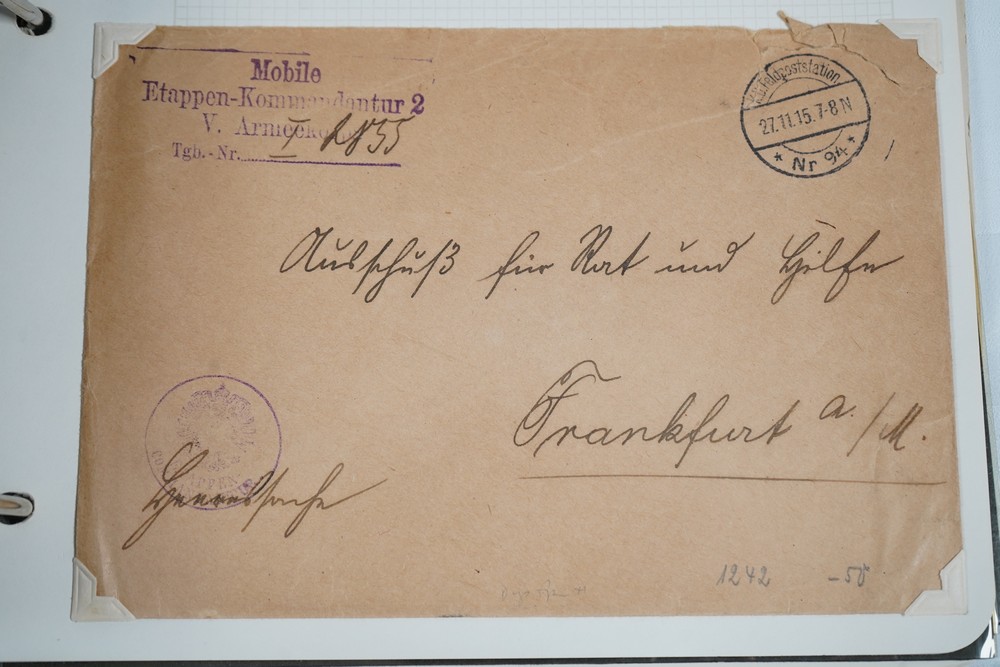 Mobile
Etappen-Kommandantur 2
V. Armeekorps
Tgb.-Nr. I 2855
K.D. Feldpoststation
27.11.15. 7-8 N
* Nr 94 *
Ausschuß für Rat und Hilfe
Frankfurt a./M.
Heeressache
1242 -50